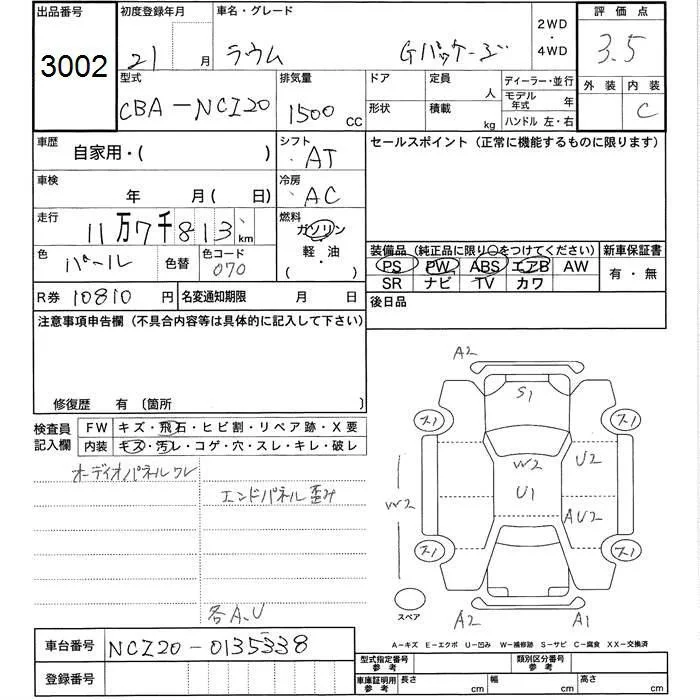 出品番号
3002
初度登録年月
21 月
車名・グレード
ラウム Gパッケージ
2WD
・
4WD
評価点
3.5
型式
CBA-NCZ20
排気量
1500 CC
ドア
形状
定員
人
積載
kg
ディーラー・並行
モデル年式 年
ハンドル 左・右
外装
内装
C
車歴
自家用・( )
シフト
AT
セールスポイント (正常に機能するものに限ります)
車検
年 月( 日)
冷房
AC
走行
11万7千813 km
燃料
ガソリン
・
軽・油
( )
色
パール
色替
色コード
070
装備品 (純正品に限り○をつけてください)
PS PW ABS エアB AW
SR ナビ TV カワ
新車保証書
有・無
R券 10810 円
名変通知期限 月 日
後日品
注意事項申告欄 (不具合内容等は具体的に記入して下さい)
修復歴 有 〔箇所 〕
検査員記入欄
FW キズ・飛石・ヒビ割・リペア跡・X要
内装 キズ・汚レ・コゲ・穴・スレ・キレ・破レ
オーディオパネルワレ
エンドパネル歪み
各A、U
A2
S1
ス1
ス1
W2
U2
U1
W2
AU2
ス1
ス1
スペア
A2
A1
A-キズ E-エクボ U-凹み W-補修跡 S-サビ C-腐食 XX-交換済
車台番号
NCZ20-0135338
登録番号
型式指定番号 参考
類別区分番号 参考
車庫証明用 参考
長さ cm
幅 cm
高さ cm